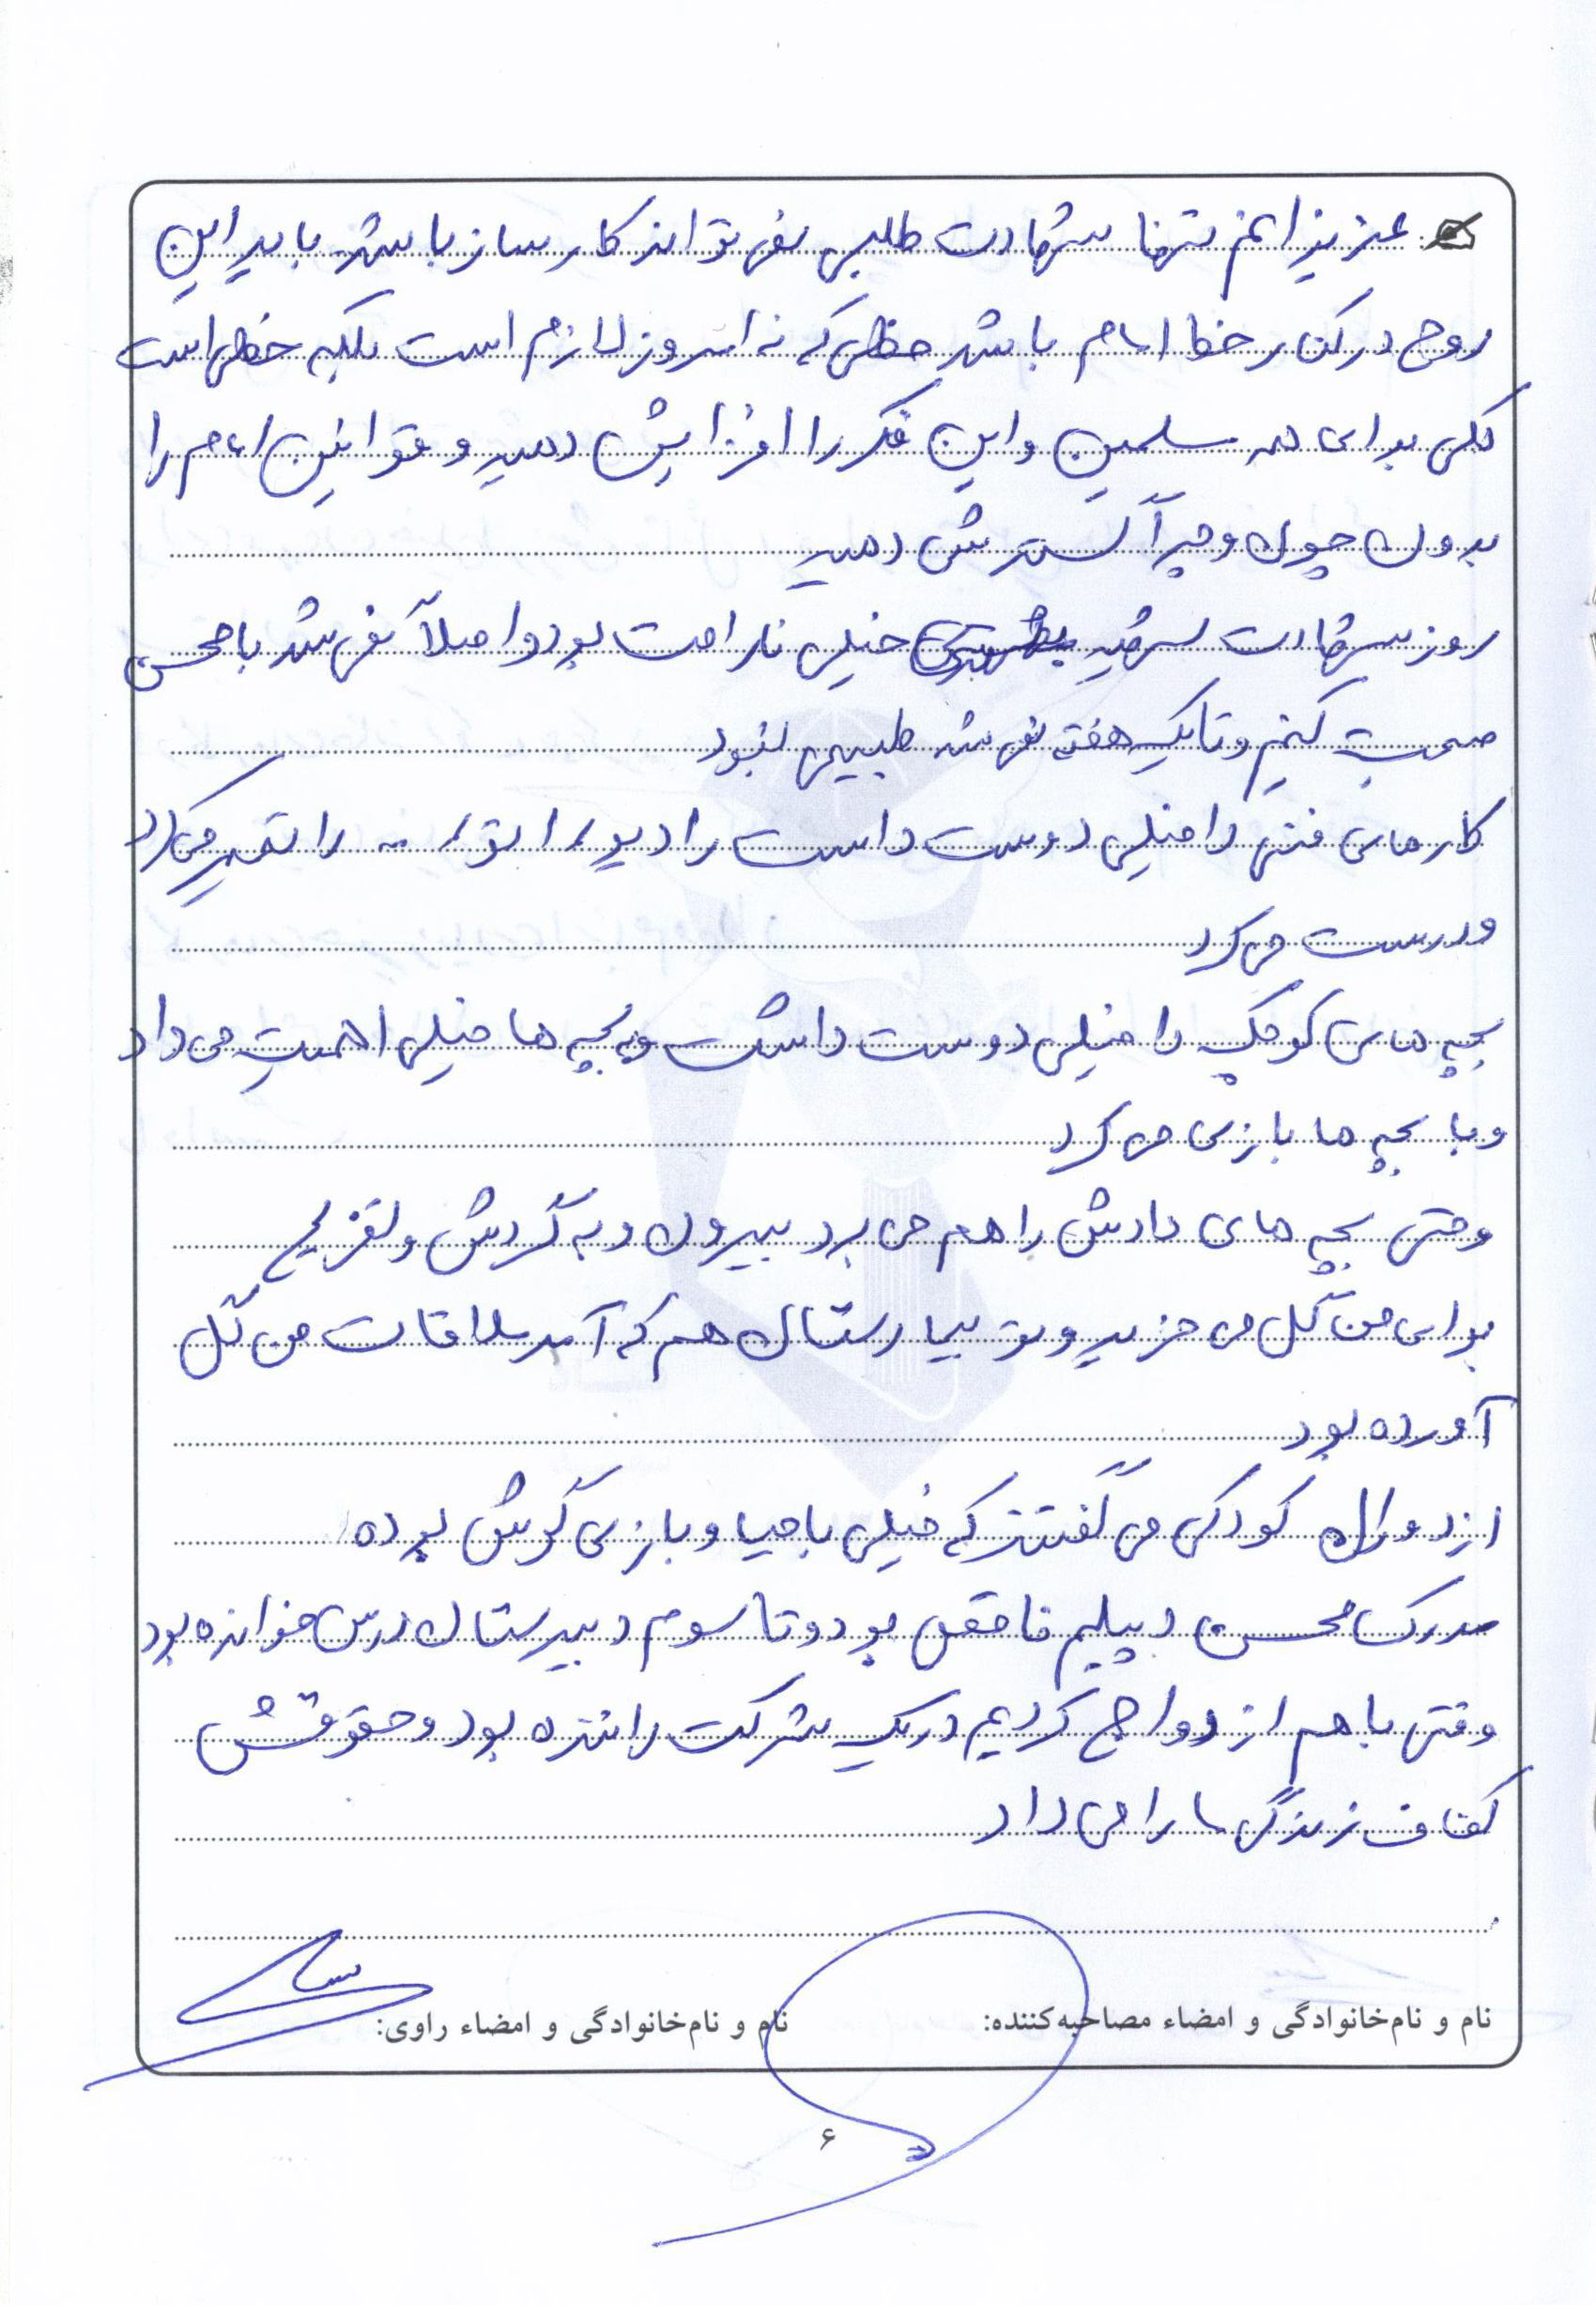 عزیزانم تنها شهادت طلبی نمی تواند کارساز باشد باید این
روح در کنار خط امام باشد خطی که نه امروز لازم است بلکه خطی است
کلی برای همه مسلمین و این فکر را افزایش دهید و قوانین امام را
بدون چون و چرا گسترش دهید
روز شهادت شهید بهشتی خیلی ناراحت بود و اصلاً نمی شد با محسن
صحبت کنیم و تا یک هفته نمی شد طبیعی نبود
کارهای فنی را خیلی دوست داشت رادیو، اتو، ... را تعمیر می کرد
و درست می کرد
بچه های کوچک را خیلی دوست داشت و به بچه ها خیلی اهمیت می داد
و با بچه ها بازی می کرد
وحتی بچه های دادش را هم می برد بیرون و به گردش و تفریح
برای من گل می خرید و تو بیمارستان هم که آمد ملاقات من گل
آورده بود
از دوران کودکی می گفتند که خیلی با حیا و بازی گوش بوده
مدرک محسن دیپلم ناقص بود و تا سوم دبیرستان درس خوانده بود
وقتی با هم ازدواج کردیم در یک شرکت راننده بود و حقوقش
کفاف زندگی ما را می داد
نام و نام‌خانوادگی و امضاء مصاحبه‌کننده: نام و نام‌خانوادگی و امضاء راوی:
۶